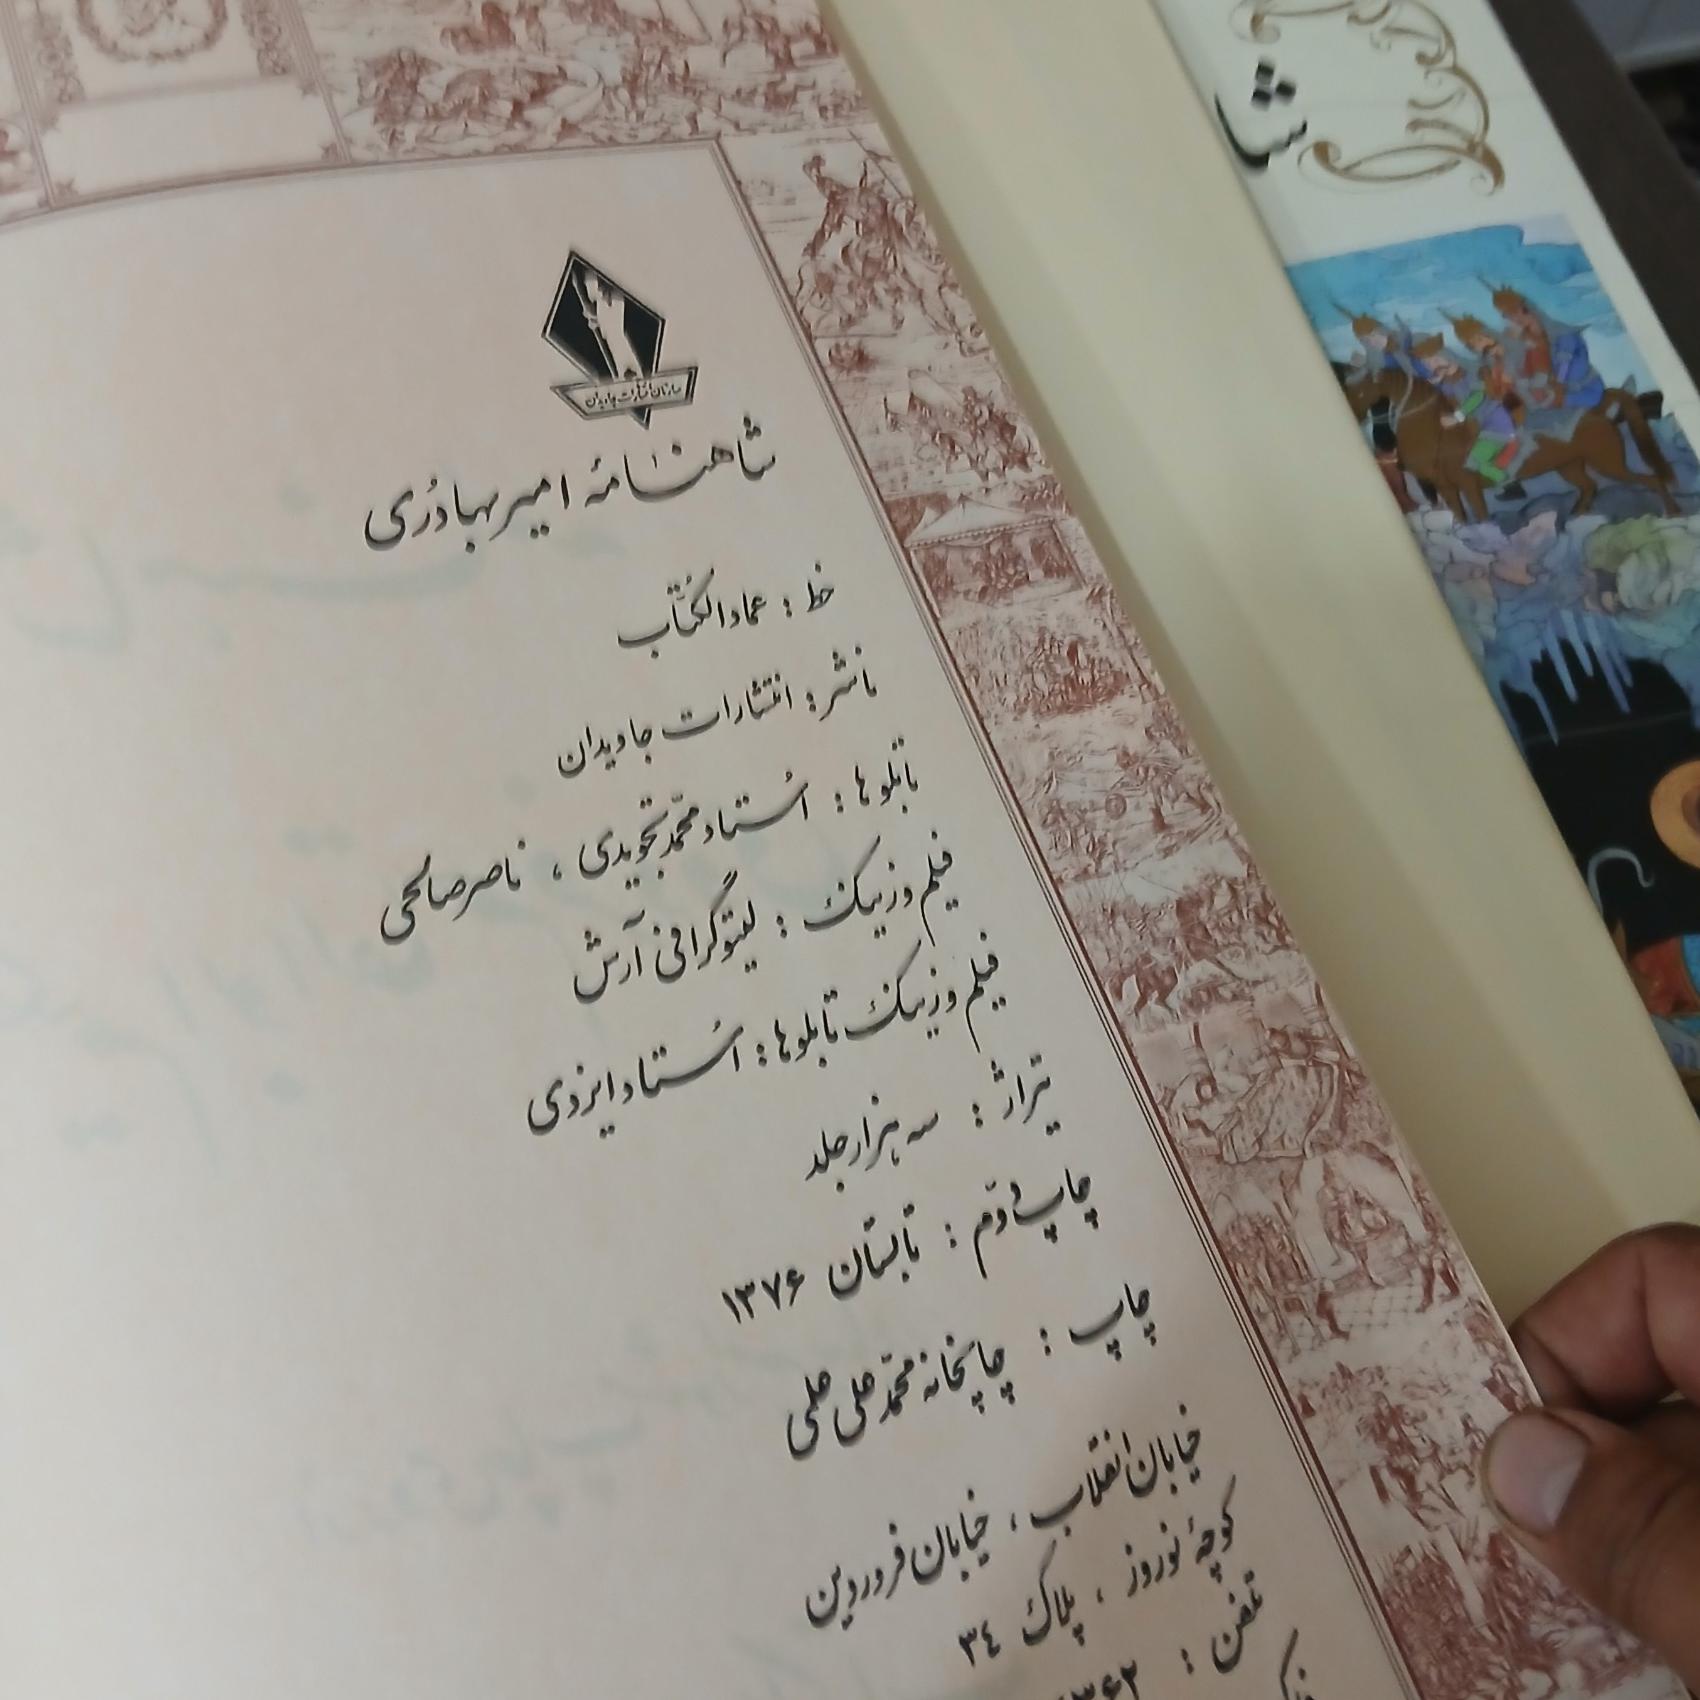 سازمان انتشارات جاویدان
شاهنامهٔ امیربهادُری
خط : عمادالکُتّاب
ناشر : انتشارات جاویدان
تابلوها : اُستاد محمّد تجویدی ، ناصر صالحی
فیلم و زینک : لیتوگرافی آرش
فیلم و زینک تابلوها : اُستاد ایزدی
تیراژ : سه هزار جلد
چاپ دوّم : تابستان ۱۳۷۶
چاپ : چاپخانه محمّد علی علمی
خیابان انقلاب ، خیابان فروردین
کوچهٔ نوروز ، پلاک ۳٤
تلفن :